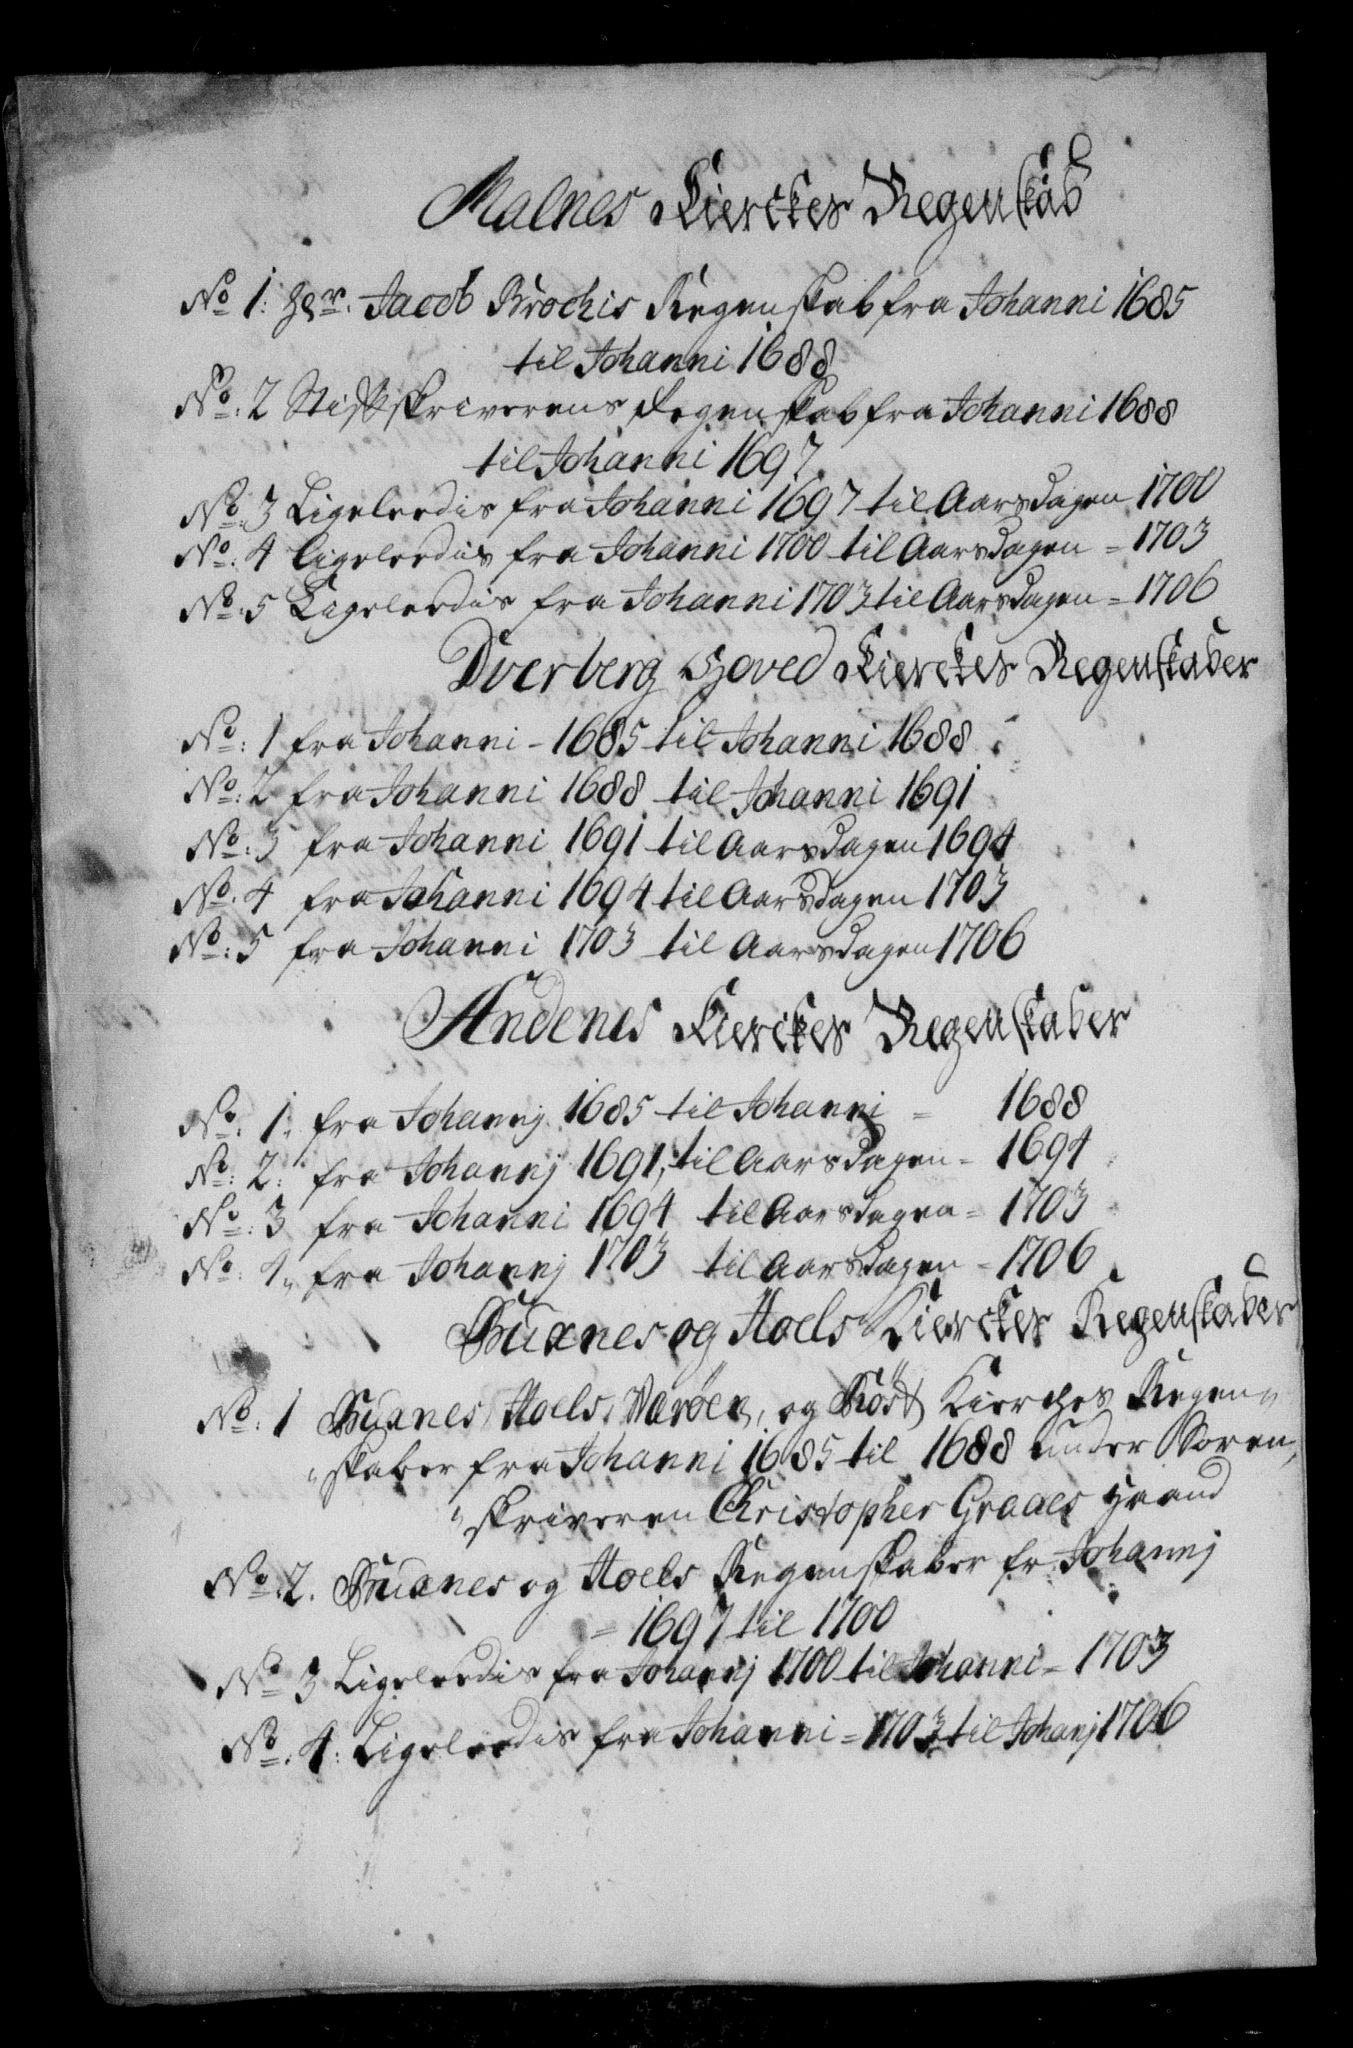 Malnes Kierckes Regenskab
No 1: Hr. Jacob Brochis Regenskab fra Johanni 1685
til Johanni 1688
No: 2 Stiftskriverens Regenskab fra Johanni 1688
til Johanni 1697
No: 3 Ligeleedis fra Johanni 1697 til Aarsdagen 1700
No: 4 Ligeleedis fra Johanni 1700 til Aarsdagen = 1703
No: 5 Ligeleedis fra Johanni 1703 til Aarsdagen = 1706
Dverberg Hoved Kierckes Regenskaber
No: 1 fra Johanni - 1685 til Johanni 1688
No: 2 fra Johanni 1688 til Johanni 1691
No: 3 fra Johanni 1691 til Aarsdagen 1694
No. 4 fra Johanni 1694 til Aarsdagen 1703
No: 5 fra Johanni 1703 til Aarsdagen 1706
Andenes Kierckes Regenskaber
No: 1. fra Johannj 1685 til Johanni = 1688
No: 2: fra Johannj 1691, til Aarsdagen = 1694
No: 3 fra Johanni 1694 til Aarsdagen = 1703
No: 4 fra Johannj 1703 til Aarsdagen = 1706
Buxnes og Hoels Kierckes Regenskaber
No: 1 Buxnes, Hoels, Værøen, og Röst Kierches Regen=
skaber fra Johanni 1685 til 1688 under Soren=
skriveren Christopher Graaes Haand
No. 2. Buxnes og Hoels Regenskaber fr. Johannj
= 1697 til 1700
No 3 Ligeleedis fra Johannj 1700 til Johanni = 1703
No. 4: Ligeleedis fra Johanni = 1703 til Johanj 1706